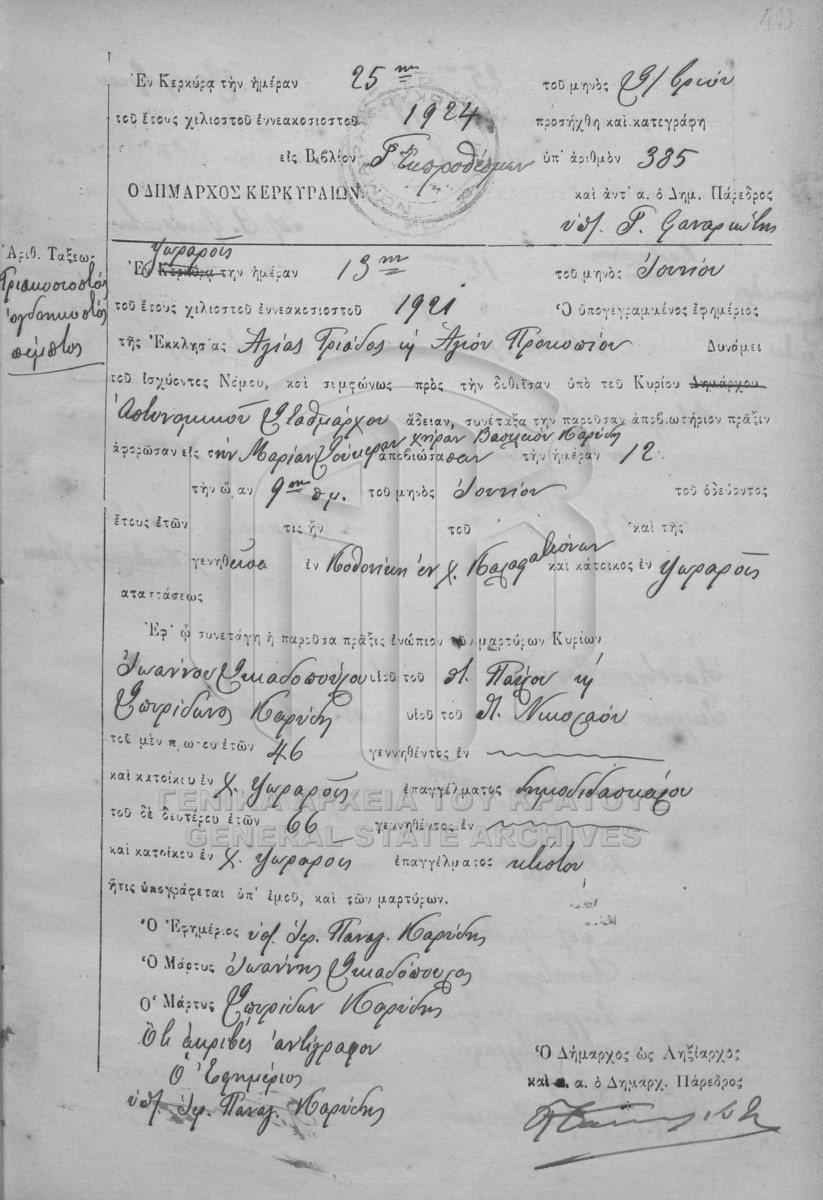 Ἐν Κερκύρᾳ τὴν ἡμέραν 25ην τοῦ μηνὸς 9/βρίου
τοῦ ἔτους χιλιοστοῦ ἐννεακοσιοστοῦ 1924 προσήχθη καὶ κατεγράφη
εἰς Βιβλίον Γ Ἐκπροθέσμων ὑπ' ἀριθμὸν 385
Ο ΔΗΜΑΡΧΟΣ ΚΕΡΚΥΡΑΙΩΝ καὶ ἀντ' α. ὁ Δημ. Πάρεδρος
ὑπ/ Γ.
Ἀριθ. Τάξεως
Τριακοσιοστός
ὀγδοηκοστός
πέμπτος
Ψωραροῖς
Ἐν Κερκύρᾳ τὴν ἡμέραν 13ην τοῦ μηνὸς Ἰουνίου
τοῦ ἔτους χιλιοστοῦ ἐννεακοσιοστοῦ 1921 Ὁ ὑπογεγραμμένος ἐφημέριος
τῆς Ἐκκλησίας Ἁγίας Τριάδος κ Ἁγίου Προκοπίου Δυνάμει
τοῦ ἰσχύοντος Νόμου, καὶ συμφώνως πρὸς τὴν δοθεῖσαν ὑπὸ τοῦ Κυρίου Δημάρχου
Ἀστυνομικοῦ Σταθμάρχου ἄδειαν, συνέταξα τὴν παροῦσαν ἀποβιωτήριον πρᾶξιν
ἀφορῶσαν εἰς τὴν Μαρίαν χήραν Βασιλείου Καρύδη ἀποβιώσασαν τὴν ἡμέραν 12
τὴν ὥραν 9ην πμ. τοῦ μηνὸς Ἰουνίου τοῦ ὁδεύοντος
ἔτους ἐτῶν τις ἦν τοῦ καὶ τῆς
γεννηθεῖσα ἐν ἐν χ. καὶ κάτοικος ἐν Ψωραροῖς
καταστάσεως
Ἐφ' ᾧ συνετάγη ἡ παροῦσα πρᾶξις ἐνώπιον τῶν μαρτύρων Κυρίων
Ἰωάννου Σκαδοπούλου υἱοῦ τοῦ Παύλου κ
Σπυρίδωνος Καρύδη υἱοῦ τοῦ Νικολάου
τοῦ μὲν πρώτου ἐτῶν 46 γεννηθέντος ἐν
καὶ κατοίκου ἐν χ. Ψωραροῖς ἐπαγγέλματος δημοδιδασκάλου
τοῦ δὲ δευτέρου ἐτῶν 66 γεννηθέντος ἐν
καὶ κατοίκου ἐν χ. Ψωραροῖς ἐπαγγέλματος κτίστου
ἥτις ὑπογράφεται ὑπ' ἐμοῦ, καὶ τῶν μαρτύρων.
Ὁ Ἐφημέριος ὑπ/ Ἱερ. Παναγ. Καρύδης
Ὁ Μάρτυς Ἰωάννης Σκαδόπουλος
Ὁ Μάρτυς Σπυρίδων Καρύδης
Ὅτι ἀκριβὲς ἀντίγραφον
Ὁ Ἐφημέριος
ὑπ/ Ἱερ. Παναγ. Καρύδης
Ὁ Δήμαρχος ὡς Ληξίαρχος
καὶ α. α. ὁ Δημαρχ. Πάρεδρος
ΓΕΝΙΚΑ ΑΡΧΕΙΑ ΤΟΥ ΚΡΑΤΟΥΣ
GENERAL STATE ARCHIVES